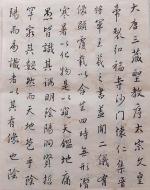 大唐三藏聖教序太宗文皇
帝製弘福寺沙門懷仁集晉
右將軍王羲之書蓋聞二儀有
像顯覆載以含生四時無形潛
寒暑以化物是以窺天鑑地庸
愚皆識其端明陰洞陽賢哲
罕窮其數然而天地苞乎陰
陽而易識者以其有像也陰